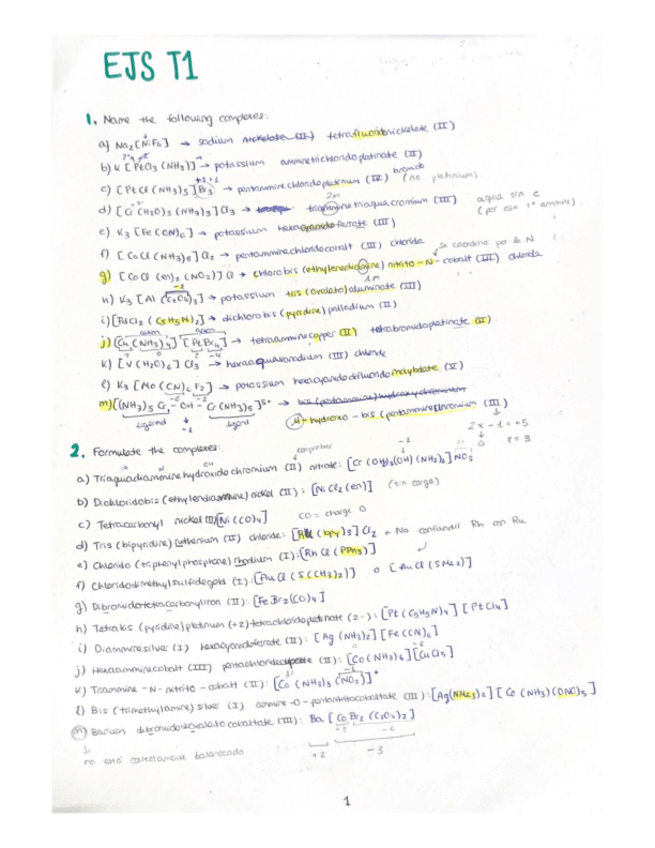 EJS T1
1. Name the following complexes:
a) Na2[NiF4] → sodium nickelate (II) tetrafluoridonickelate (II)
b) K[PtCl3(NH3)] → potassium amminetrichloridoplatinate (II)
c) [PtCl(NH3)5]Br3 → pentaamminechloridoplatinum (IV) bromide (no platinium)
d) [Cr(H2O)3(NH3)3]Cl3 → triamminetriaquacromium (III) aqua sin e
(por eso 1º ammine)
e) K3[Fe(CN)6] → potassium hexacyanidoferrate (III)
f) [CoCl(NH3)5]Cl2 → pentaamminechloridocobalt (III) chloride
se coordina por la N
g) [CoCl(en)2(NO2)]Cl → chlorobis (ethylenediamine) nitrito-N-cobalt (III) chloride
h) K3[Al(C2O4)3] → potassium tris (oxalato) aluminate (III)
i) [PdCl2(C5H5N)2] → dichlorobis (pyridine) palladium (II)
j) [Cu(NH3)4][PtBr4] → tetraamminecopper (II) tetrabromidoplatinate (II)
k) [V(H2O)6]Cl3 → hexaaquavanadium (III) chloride
l) K3[Mo(CN)6F2] → potassium hexacyanidodifluoridomolybdate (V)
m) [(NH3)5Cr-OH-Cr(NH3)5]5+ → bis (pentaammine) hydroxychromium
ligand ligand μ-hydroxo-bis (pentaamminechromium (III)
-1 2x - 1 = +5
x = 3
2. Formulate the complexes:
comprobar
a) Triaquadiamminehydroxido chromium (II) nitrate: [Cr(OH2)3(OH)(NH3)2]NO3
b) Dichloridobis (ethylendiammine) nickel (II): [NiCl2(en)] (sin carga)
c) Tetracarbonyl nickel (0) [Ni(CO)4] CO = charge 0
d) Tris (bipyridine) ruthenium (II) chloride: [Ru(bpy)3]Cl2 ← No confundir Rh con Ru
e) Chlorido (triphenylphosphane) rhodium (I): [RhCl(PPh3)]
f) Chloridodimethylsulfidegold (I): [AuCl(S(CH3)2)] o [AuCl(SMe2)]
g) Dibromidotetracarbonyliron (II): [FeBr2(CO)4]
h) Tetrakis (pyridine) platinum (+2) tetrachloridoplatinate (2-): [Pt(C5H5N)4][PtCl4]
i) Diamminesilver (I) hexacyanidoferrate (II): [Ag(NH3)2][Fe(CN)6]
j) Hexaamminecobalt (III) pentachloridocuprate (II): [Co(NH3)6][CuCl5]
k) Triammine-N-nitrito-cobalt (II): [Co(NH3)3(NO2)]+
l) Bis (trimethylamine) silver (I) ammine-O-pentanitritocobaltate (III): [Ag(NMe3)2][Co(NH3)(ONO)5]
m) Barium dibromidodioxalato cobaltate (III): Ba[CoBr2(C2O4)2]
no está correctamente balanceado +2 -3
1